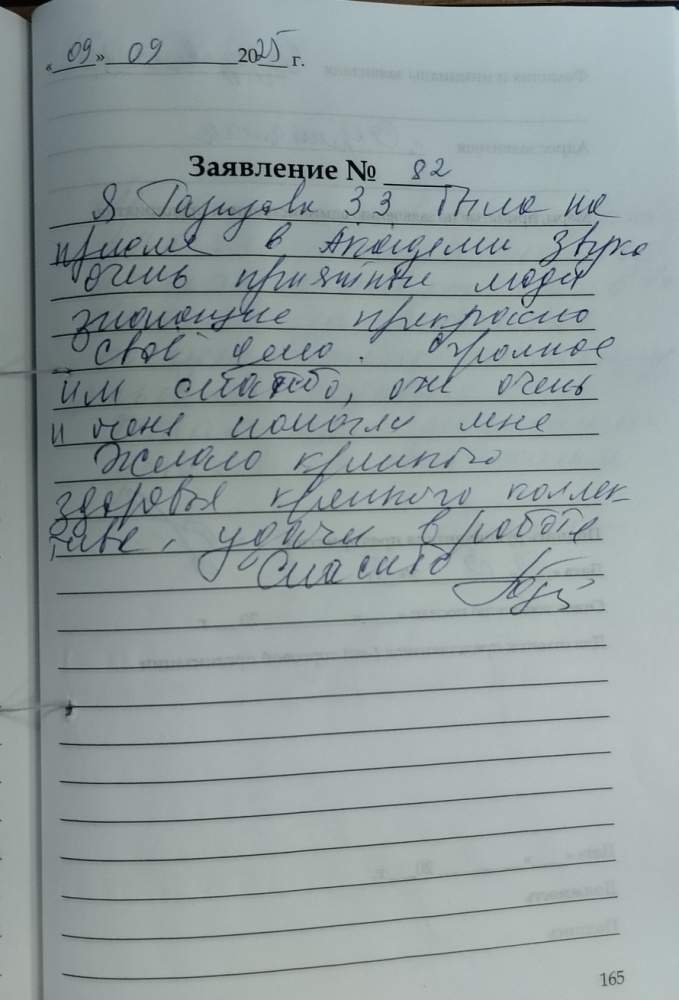 «09» 09 2025 г.
Заявление № 82
Я Газизова З З была на
приеме в Академии звука
очень приятные люди
знающие прекрасно
своё дело. Огромное
им спасибо, они очень
и очень помогли мне
Желаю крепкого
здоровья крепкого коллек
тиве, удачи в работе
Спасибо
165